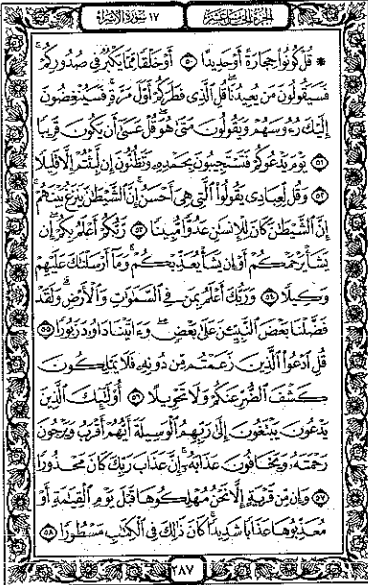 الجزء الخامس عشر
١٧ سورة الإسراء
* قُلْ كُونُوا۟ حِجَارَةً أَوْ حَدِيدًا ٥٠ أَوْ خَلْقًا مِّمَّا يَكْبُرُ فِى صُدُورِكُمْ ۚ
فَسَيَقُولُونَ مَن يُعِيدُنَا ۖ قُلِ ٱلَّذِى فَطَرَكُمْ أَوَّلَ مَرَّةٍ ۚ فَسَيُنْغِضُونَ
إِلَيْكَ رُءُوسَهُمْ وَيَقُولُونَ مَتَىٰ هُوَ ۖ قُلْ عَسَىٰٓ أَن يَكُونَ قَرِيبًا
٥١ يَوْمَ يَدْعُوكُمْ فَتَسْتَجِيبُونَ بِحَمْدِهِۦ وَتَظُنُّونَ إِن لَّبِثْتُمْ إِلَّا قَلِيلًا
٥٢ وَقُل لِّعِبَادِى يَقُولُوا۟ ٱلَّتِى هِىَ أَحْسَنُ ۚ إِنَّ ٱلشَّيْطَٰنَ يَنزَغُ بَيْنَهُمْ ۚ
إِنَّ ٱلشَّيْطَٰنَ كَانَ لِلْإِنسَٰنِ عَدُوًّا مُّبِينًا ٥٣ رَّبُّكُمْ أَعْلَمُ بِكُمْ ۖ إِن
يَشَأْ يَرْحَمْكُمْ أَوْ إِن يَشَأْ يُعَذِّبْكُمْ ۚ وَمَآ أَرْسَلْنَٰكَ عَلَيْهِمْ
وَكِيلًا ٥٤ وَرَبُّكَ أَعْلَمُ بِمَن فِى ٱلسَّمَٰوَٰتِ وَٱلْأَرْضِ ۗ وَلَقَدْ
فَضَّلْنَا بَعْضَ ٱلنَّبِيِّۦنَ عَلَىٰ بَعْضٍ ۖ وَءَاتَيْنَا دَاوُۥدَ زَبُورًا ٥٥
قُلِ ٱدْعُوا۟ ٱلَّذِينَ زَعَمْتُم مِّن دُونِهِۦ فَلَا يَمْلِكُونَ
كَشْفَ ٱلضُّرِّ عَنكُمْ وَلَا تَحْوِيلًا ٥٦ أُو۟لَٰٓئِكَ ٱلَّذِينَ
يَدْعُونَ يَبْتَغُونَ إِلَىٰ رَبِّهِمُ ٱلْوَسِيلَةَ أَيُّهُمْ أَقْرَبُ وَيَرْجُونَ
رَحْمَتَهُۥ وَيَخَافُونَ عَذَابَهُۥٓ ۚ إِنَّ عَذَابَ رَبِّكَ كَانَ مَحْذُورًا
٥٧ وَإِن مِّن قَرْيَةٍ إِلَّا نَحْنُ مُهْلِكُوهَا قَبْلَ يَوْمِ ٱلْقِيَٰمَةِ أَوْ
مُعَذِّبُوهَا عَذَابًا شَدِيدًا ۚ كَانَ ذَٰلِكَ فِى ٱلْكِتَٰبِ مَسْطُورًا ٥٨
٢٨٧